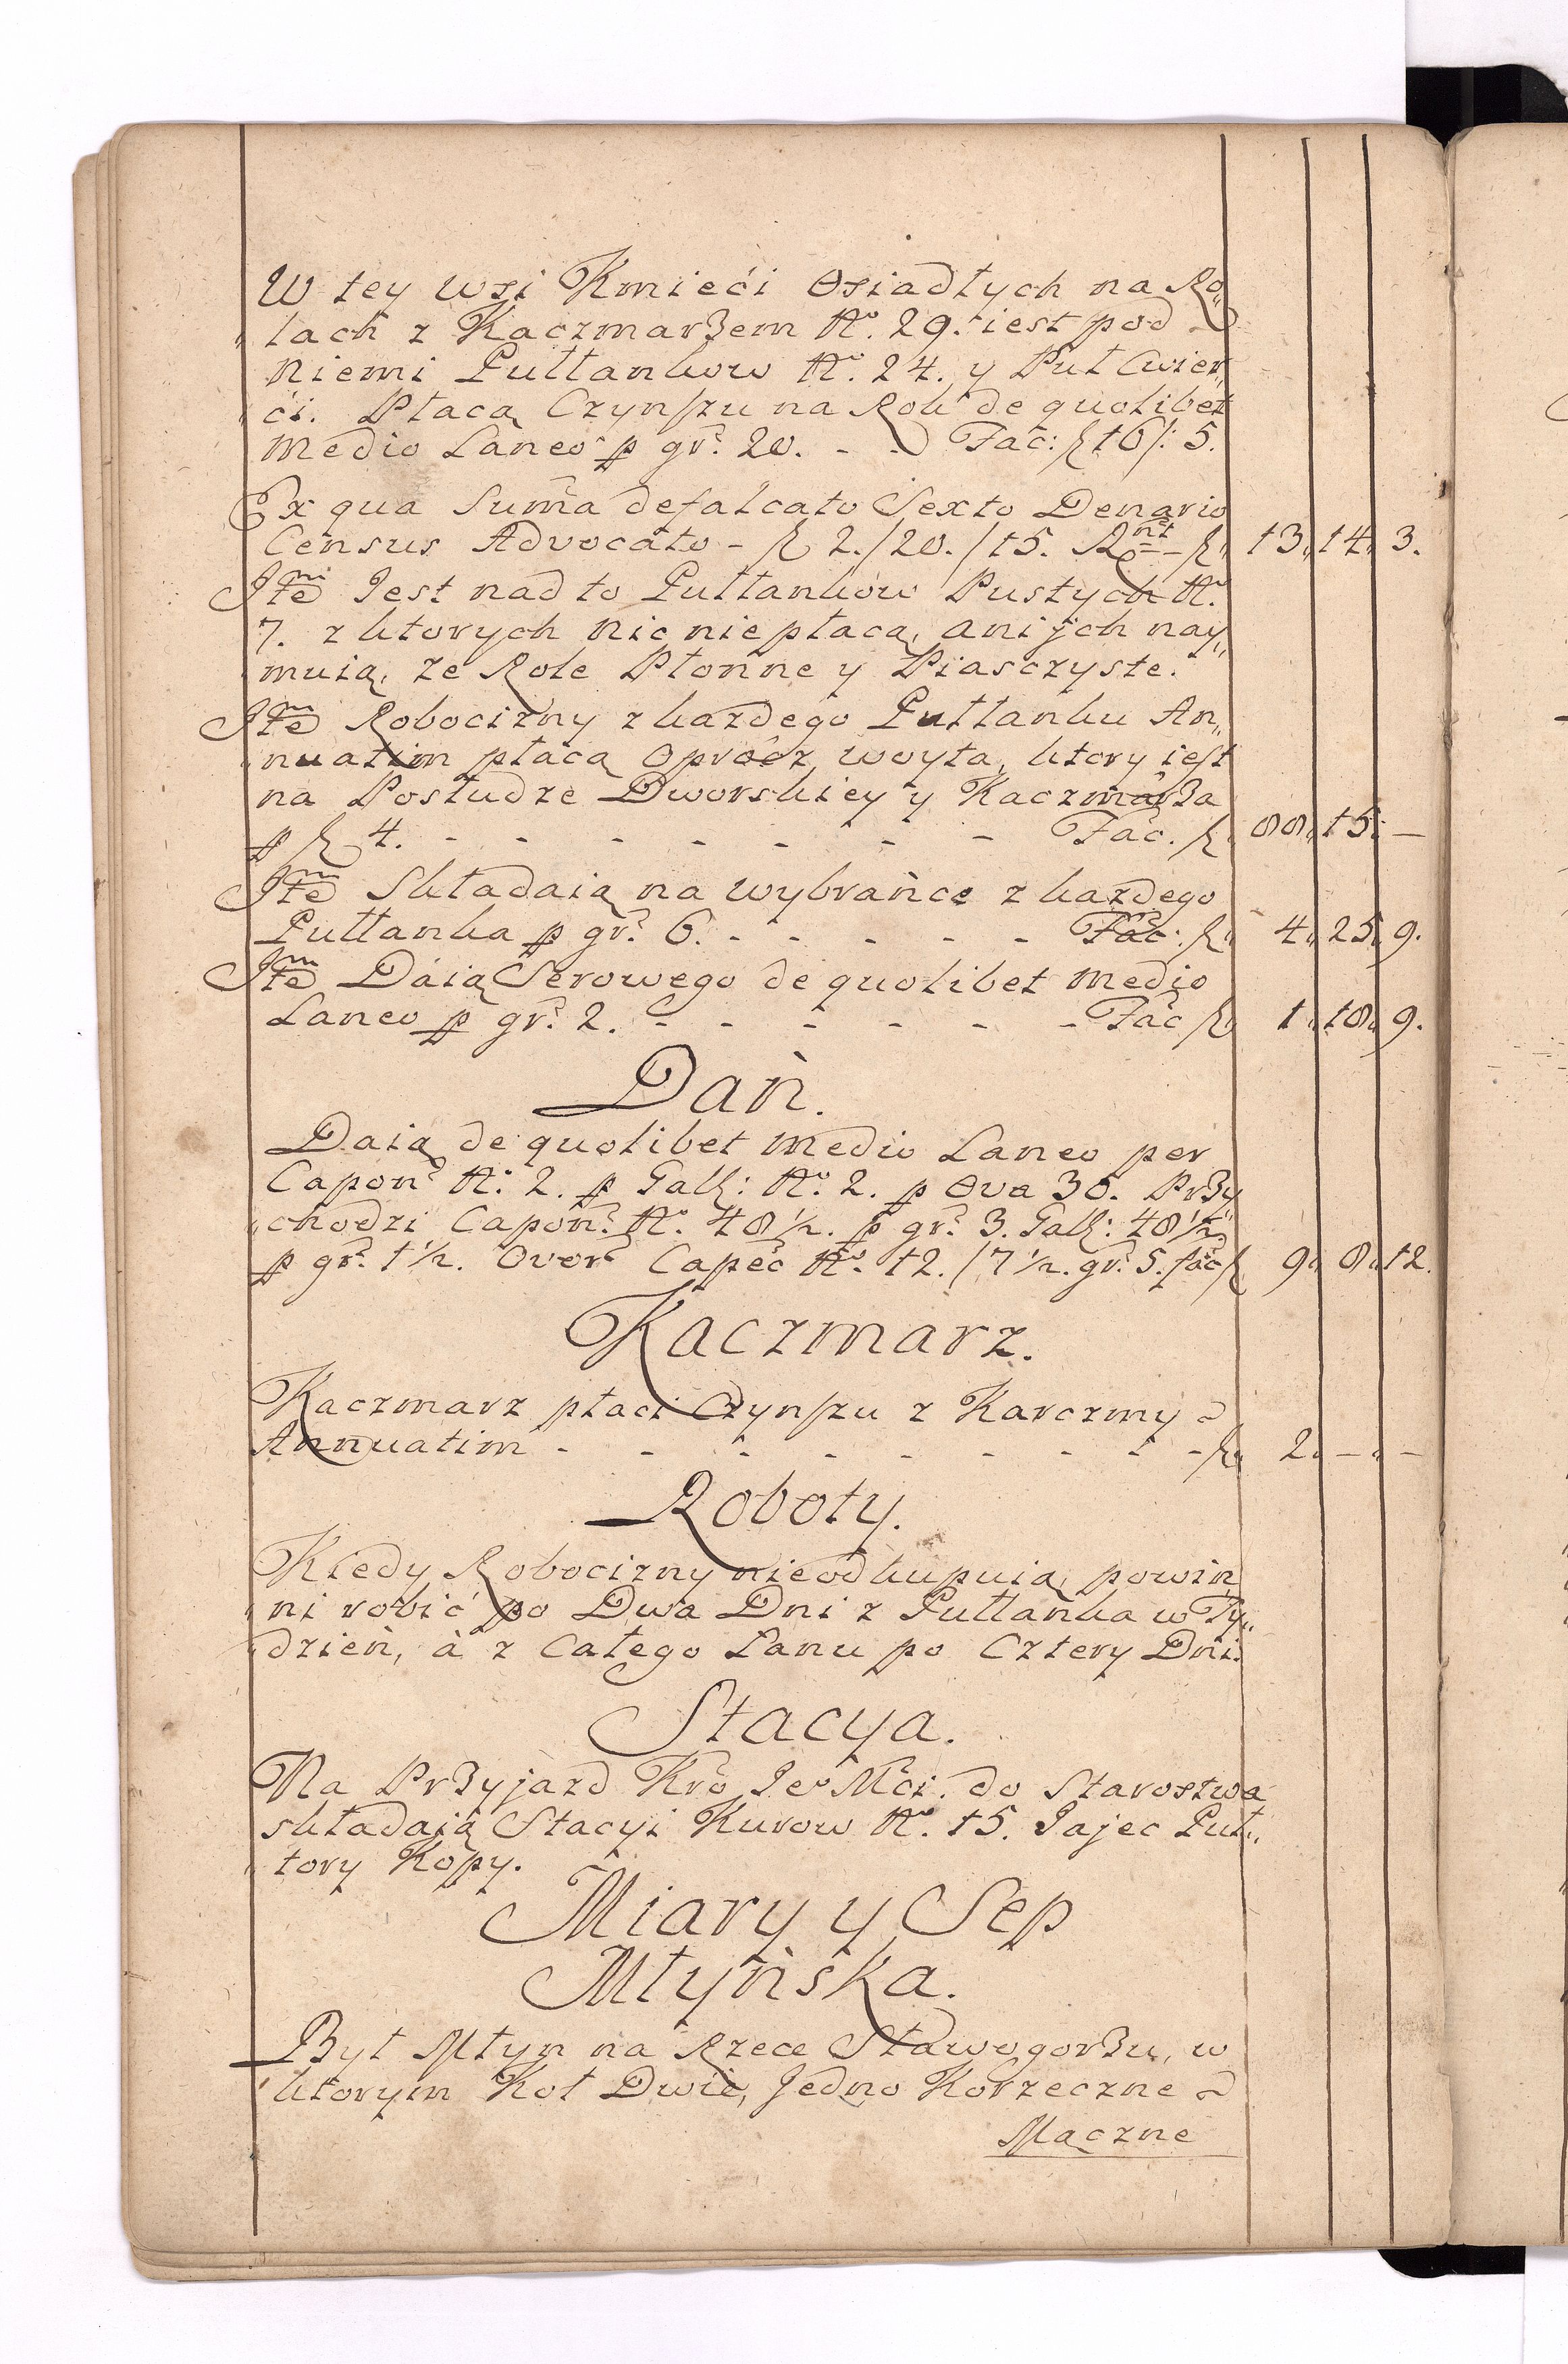 W tey wsi Kmieći Osiadłych na Ro„
„lach z Kaczmarzem No. 29. iest pod
Niemi Pułłankow No. 24. y Puł Cwier„
„ći. Płacą Czynszu na Rok de quolibet
medio Laneo p gr. 20. - - Fac: fl 16/: 5.
Ex qua Suma defalcato Sexto Denario
Census Advocato - fl 2./20./15. Rnt - fl 13„ 14„ 3.
Itē Jest nad to Pułłankow Pustych No.
7. z ktorych nic nie płacą, ani jch nay„
„muią, ze Role Płonne y Piasczyste.
Itē Robocizny z kazdego Pułłanku An„
„nuatim płacą oprócz woyta, ktory iest
na Posłudze Dworskiey y Kaczmarza
p fl 4. - - - - - - - Fac. fl 88„ 15„ —
Itē Składaią na wybrance z kazdego
Pułłanka p gr. 6. - - - - - Fac. fl 4„ 25„ 9.
Itē Daią Serowego de quolibet medio
Laneo p gr. 2. - - - - - - Fac fl 1„ 18„ 9.
Dań.
Daią de quolibet medio Laneo per
Capon No. 2. p Gall: No. 2. p Ova 30. Przy„
„chodzi Capon. No. 48½. p gr. 3. Gall: 48½
p gr. 1½. Over Capec No. 12./7½. gr. 5. fac fl 9„ 8„ 12.
Kaczmarz.
Kaczmarz płaci Czynszu z Karczmy
Annuatim - - - - - - - - - fl 2„ —„ —
Roboty.
Kiedy Robocizny nieodkupuią, powin„
„ni robić po Dwa Dni z Pułłanka w Ty„
„dzień, à z Całego Łanu po Cztery Dni.
Stacya.
Na Przyjazd Kro Jeo Mci. do Starostwa
składają Stacyi Kurow No. 15. Jajec Puł„
„tory Kopy.
Miary y Sep
Młyńska.
Był Młyn na Rzece Sławogorzu, w
ktorym Koł Dwie, Jedno Korzeczne
Mączne